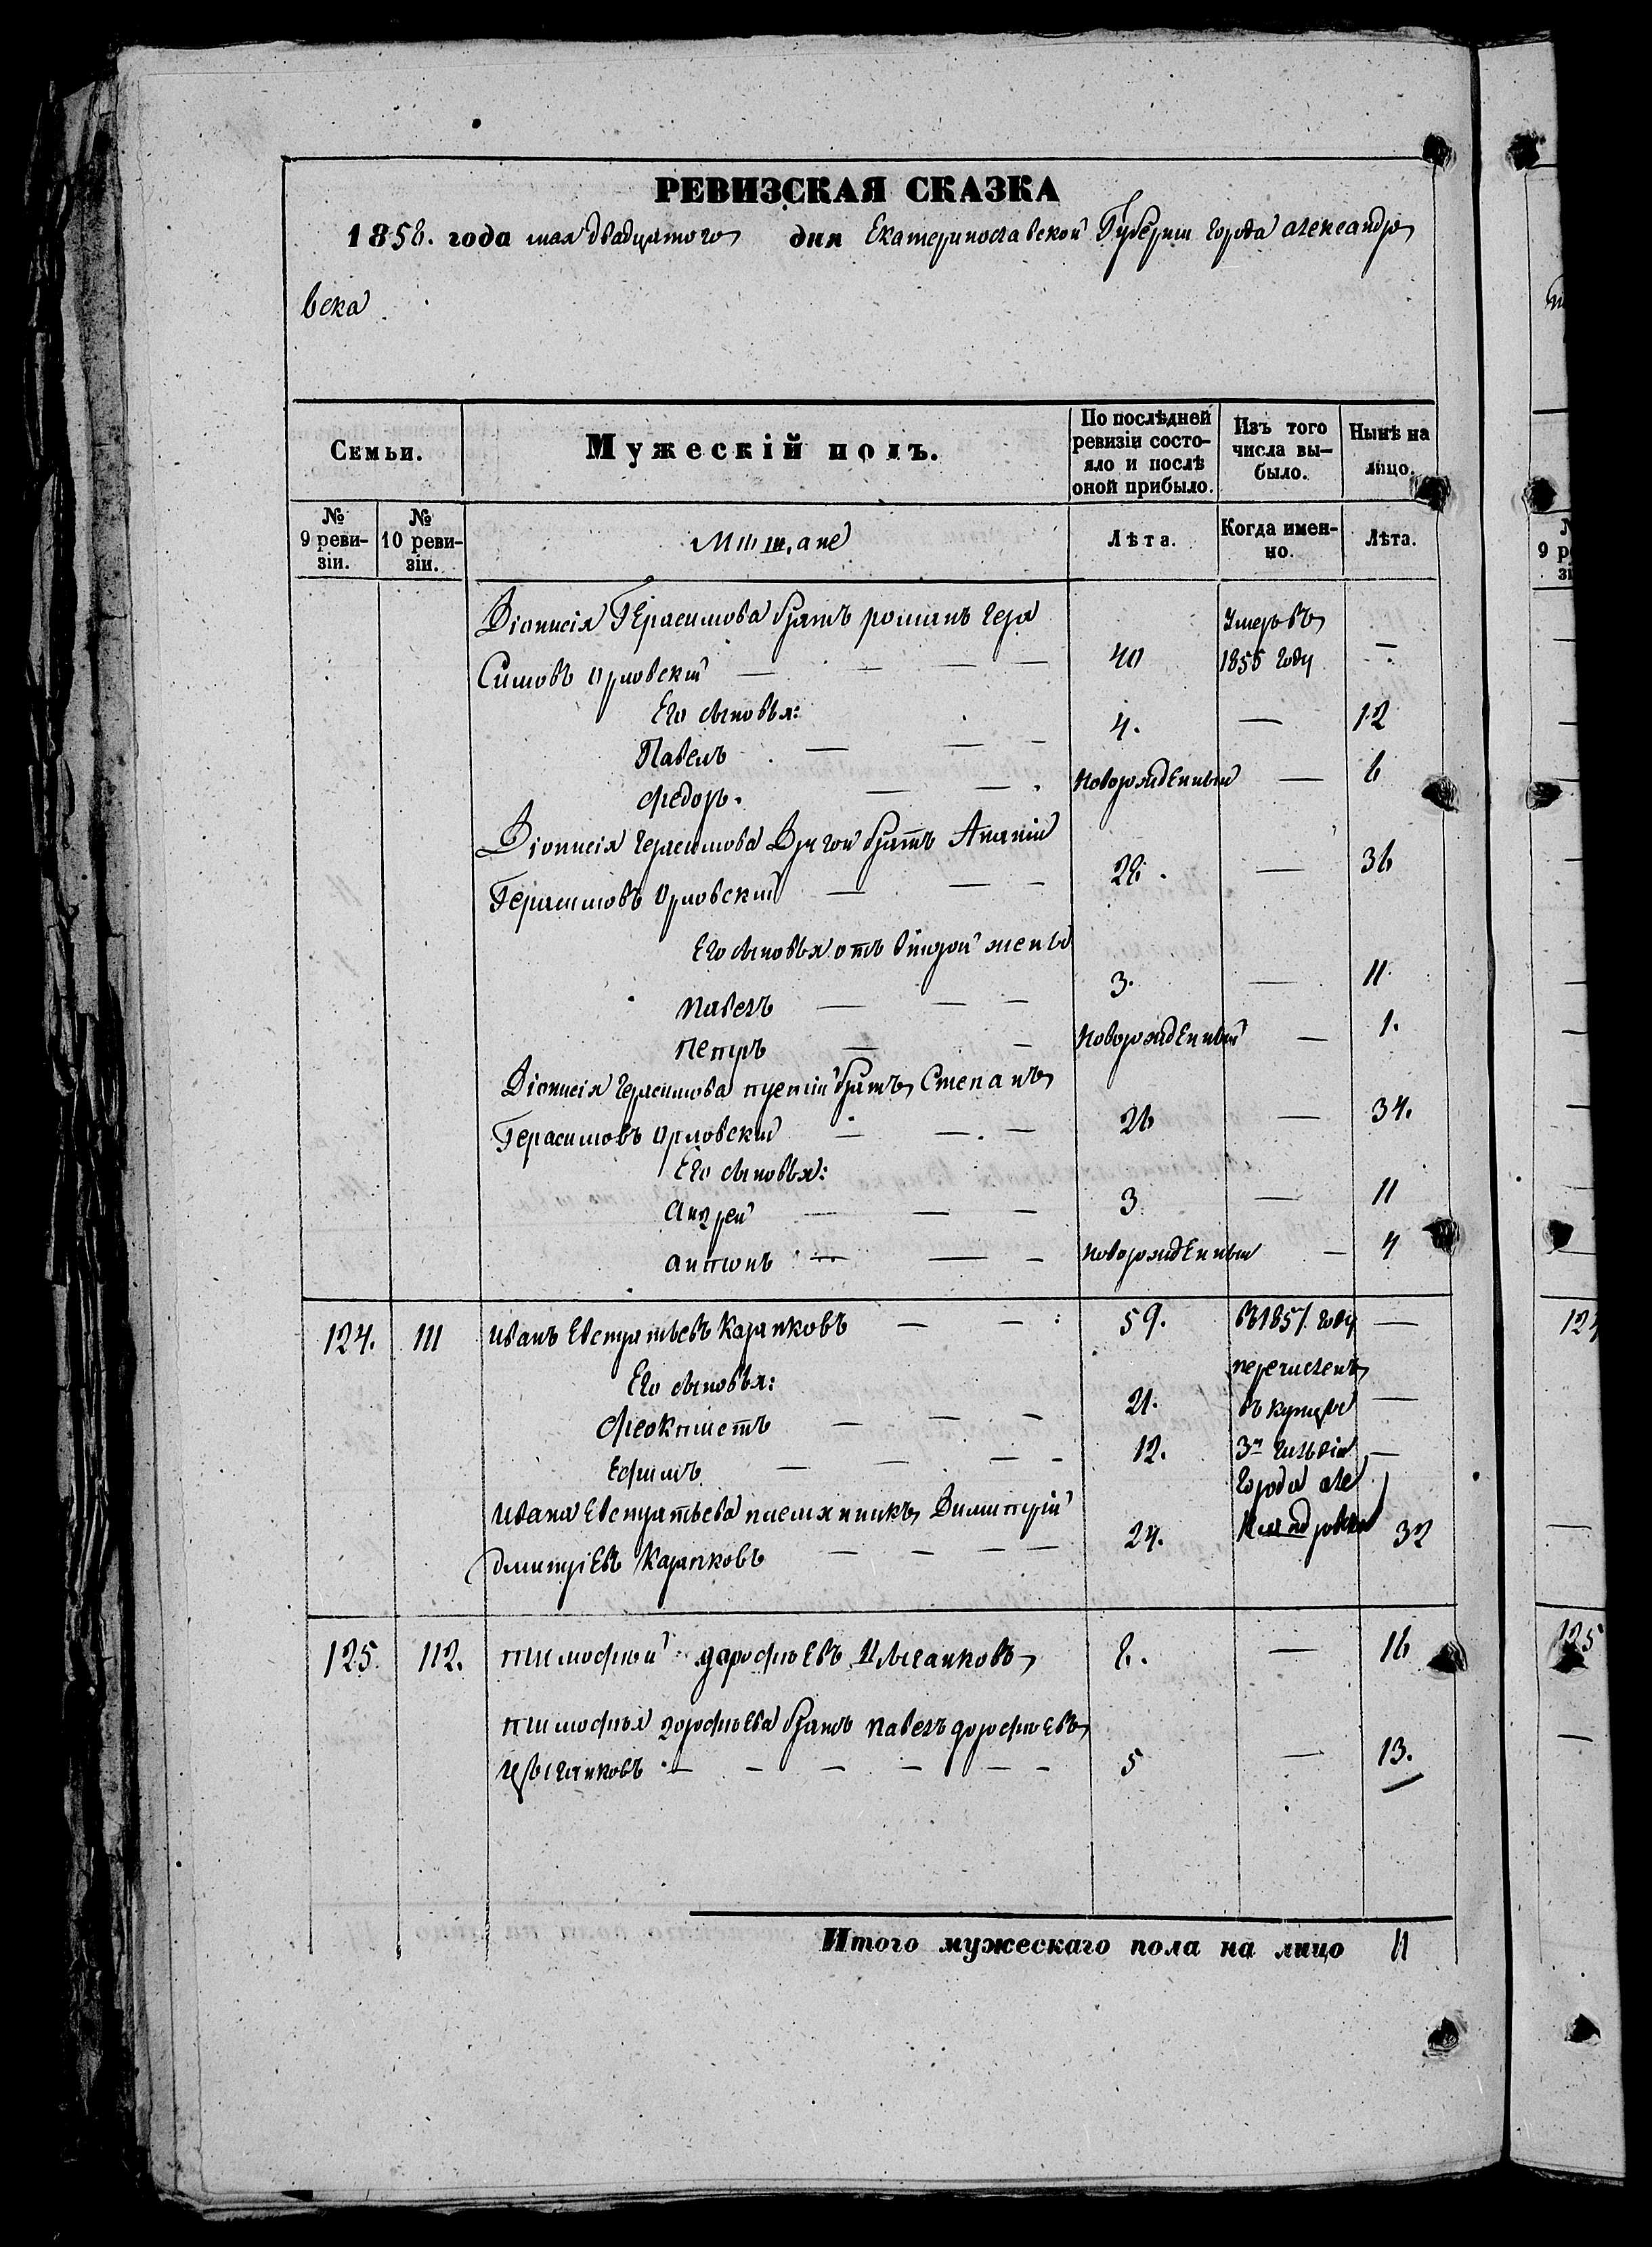 РЕВИЗСКАЯ СКАЗКА
1858. года мая двадцятого дня Екатеринославской Губерніи города александро
вска
Семьи.
Мужескій полъ.
По послѣдней ревизіи состо-
яло и послѣ
оной прибыло.
Изъ того
числа вы-
было.
Нынѣ на
лицо.
№
9 реви-
зіи.
№
10 реви-
зіи.
Мѣщане
Лѣта.
Когда имен-
но.
Лѣта.
Діонисія Герасимова братъ романъ гера Умеръ въ
Симовъ Орловский — — — — 40 1855 году —
Его сыновья:
Павелъ — — — 4. — 12
Федоръ. — — Новорожденный — 6
Діонисія герасимова Другои братъ Ананій
Герасимовъ Орловский — — — 28. — 36
Его сыновья отъ второй жены
павелъ — — — 3. — 11
петръ — — Новорожденный — 1.
Діонисія герасимова третий братъ Степанъ
Герасимовъ Орловский — — — 26 — 34.
Его сыновья:
андрей — — — 3 — 11
антонъ — — — новорожденный — 4
124. 111 Иванъ Евстратьевъ Карпковъ — — 59. въ 1857 году —
Его сыновья: перечисленъ
Феоктистъ — — — 21. въ купцы —
Ефимъ — — — — 12. 3й гильдіи —
Ивана Евстратьева племянникъ Димитрій города але
дмитріевъ Карпковъ — — — — 24. ксандровска 32
125. 112. тимофѣй дорофѣевъ Цыганковъ 8. — 16
тимофѣя дорофѣева братъ павелъ дорофѣевъ
цыганковъ — — — — — — 5 — 13.
Итого мужескаго пола на лицо 11
№
9 ре
зі
124
125